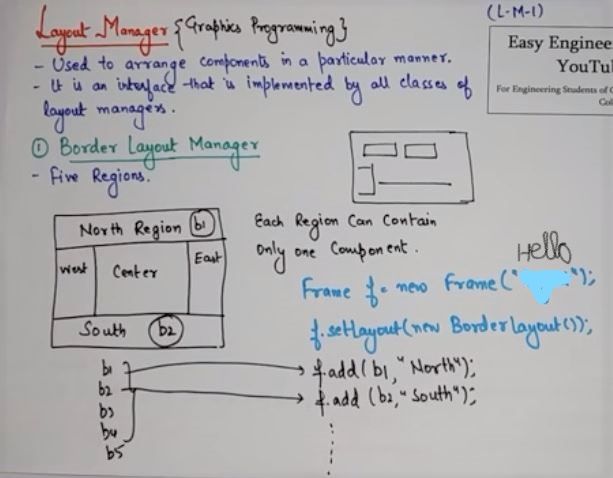 (L-M-1)
Layout Manager {Graphics Programming}
Easy Enginee
YouTu
For Engineering Students of
Col
- Used to arrange components in a particular manner.
- It is an interface that is implemented by all classes of
layout managers.
① Border Layout Manager
- Five Regions.
North Region b1
West Center East
South b2
Each Region Can Contain
only one Component.
Hello
Frame f = new Frame(" ");
f.setLayout(new BorderLayout());
b1
b2
b3
b4
b5
f.add(b1,"North");
f.add (b2,"South");